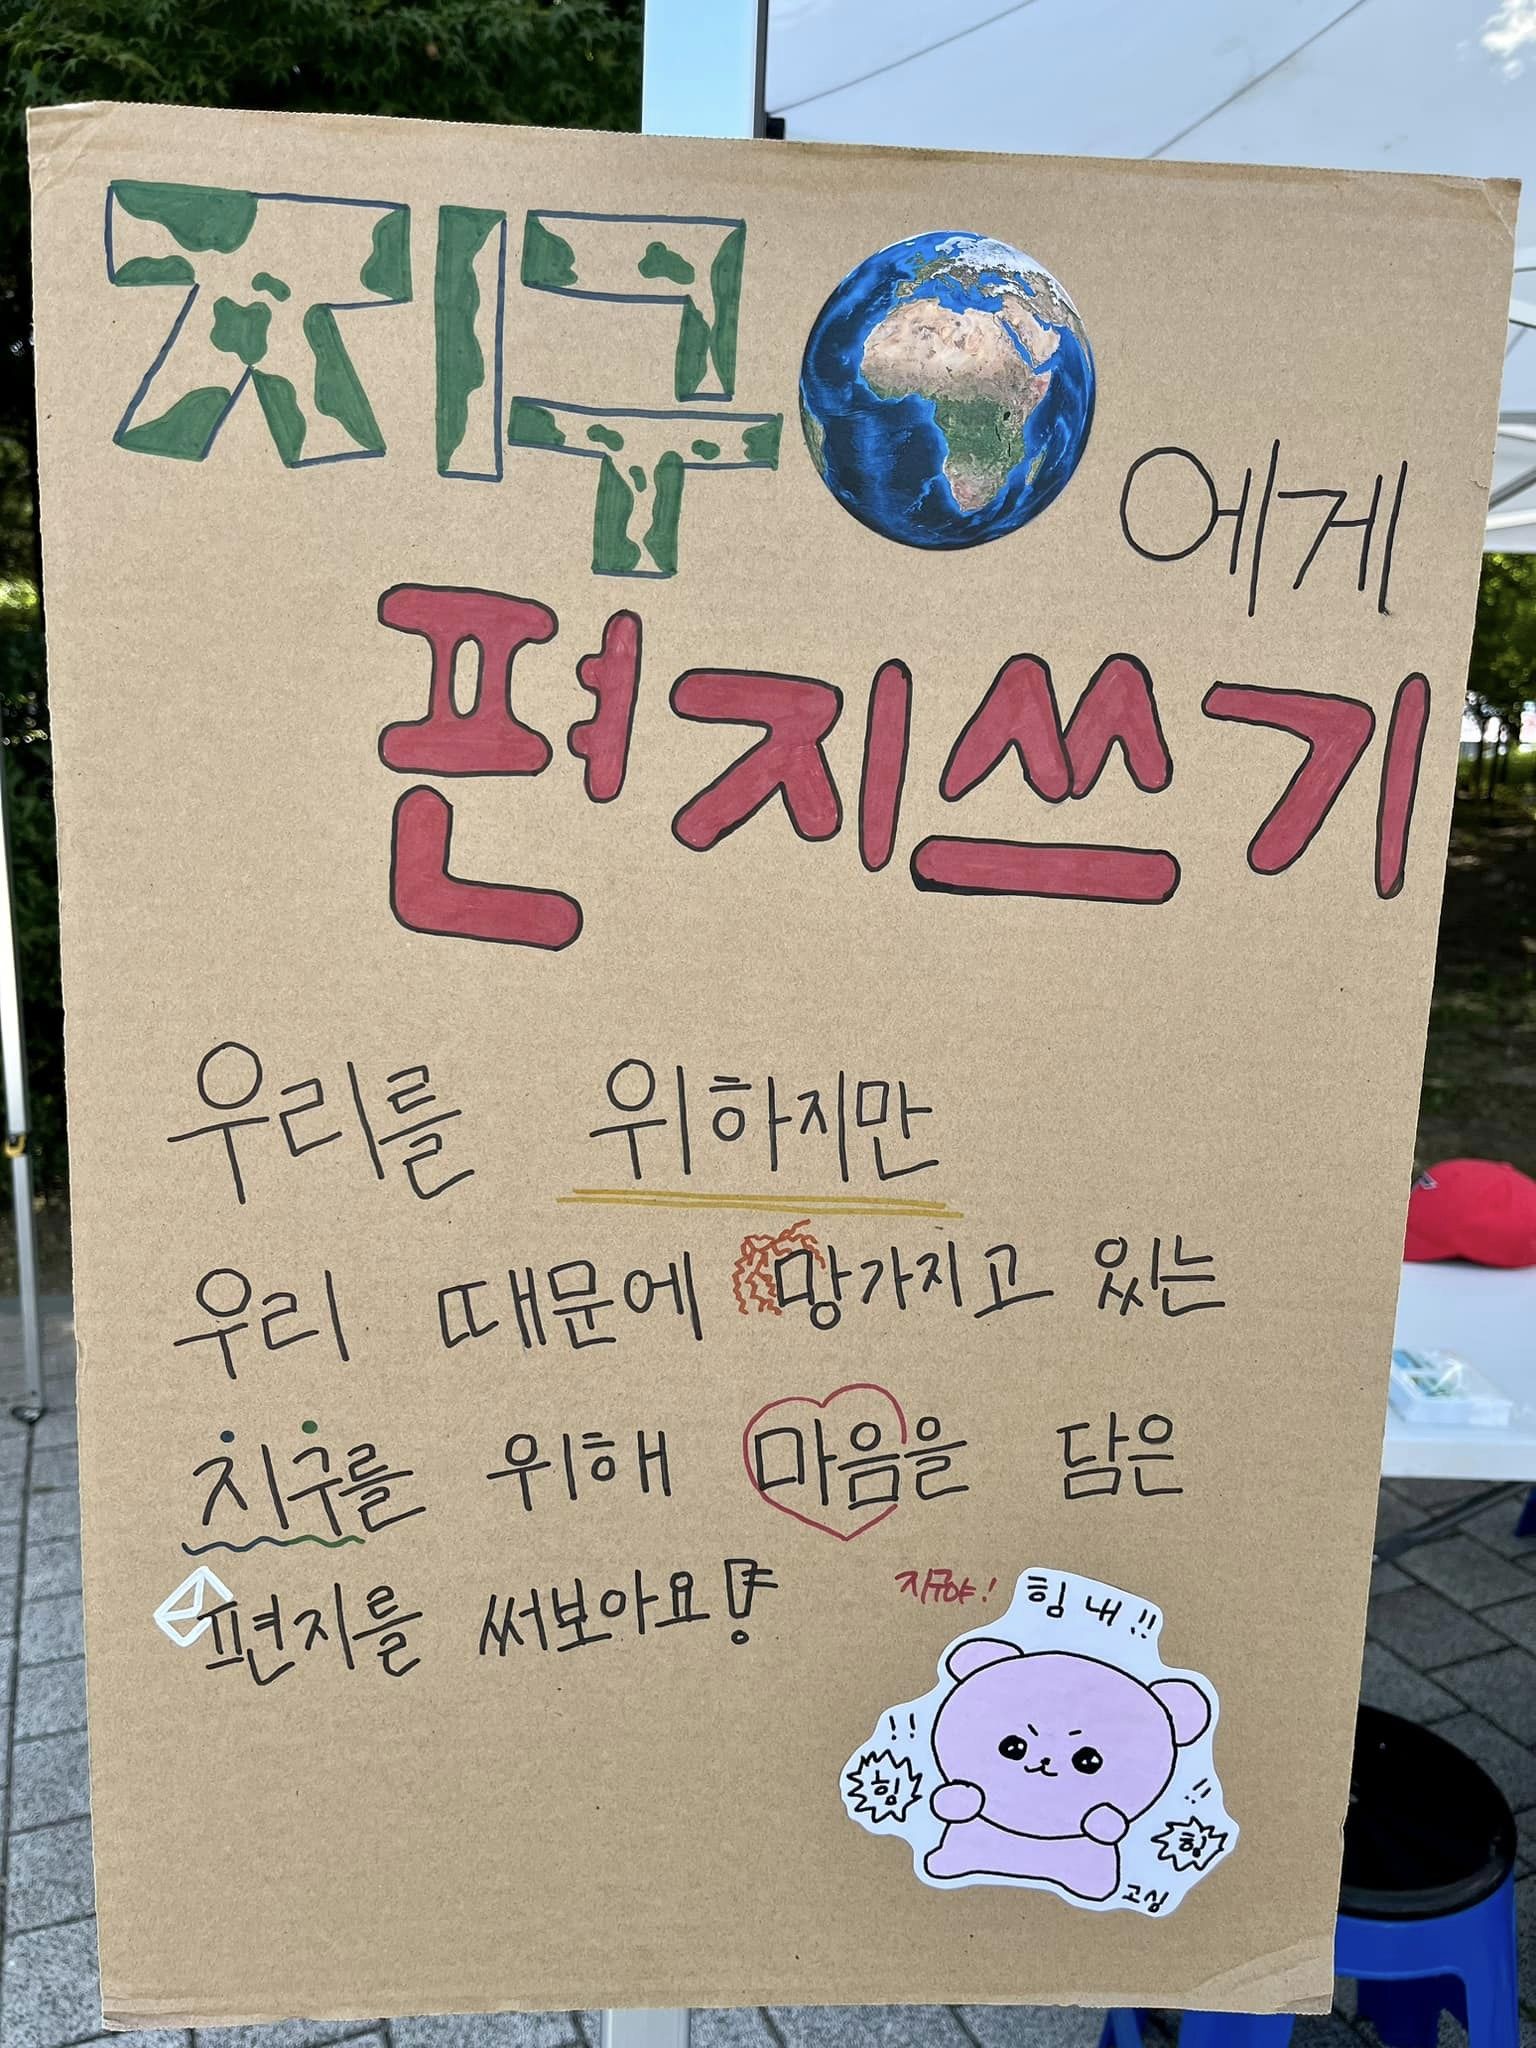 지구에게
편지쓰기
우리를 위하지만
우리 때문에 망가지고 있는
지구를 위해 마음을 담은
편지를 써보아요!
지구야! 힘내!!
!!
힘
!!
힘